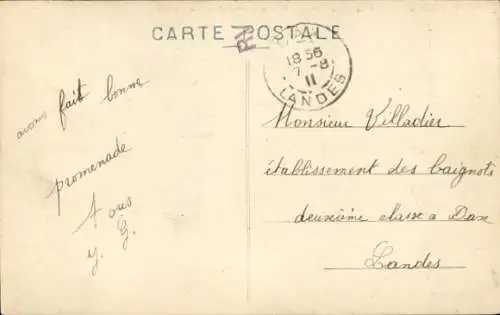 CARTE POSTALE
RV
DAX
18 55
7 -8
11
LANDES
avons fait bonne
promenade
A vous
y. G.
Monsieur Villadier
établissement des baignots
deuxième classe a Dax
Landes